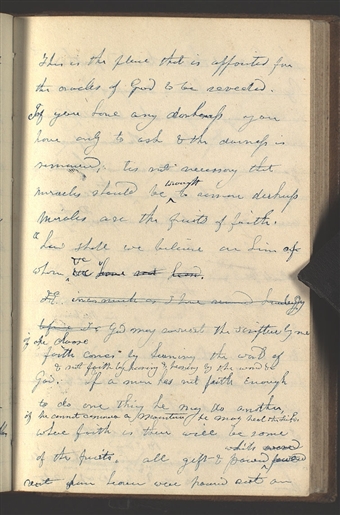 This is the place that is appointed for
the oracles of God to be revealed.
If you have any darkness you
have only to ask & the darkness is
removed; tis not necessary that
miracles should be wrought to remove darkness
Miracles are the fruits of faith.
"how shall we believe on him of
whom
God may correct the scripture by me
if he choose
faith comes by hearing the word of
& not faith by hearing & hearing by the word &c
God. If a man has not faith enough
to do one thing he may do another,
if he cannot remove a Mountain he may heal the sick
where faith is there will be some
of the fruits. all gifts & power which
sent from heaven were poured out on